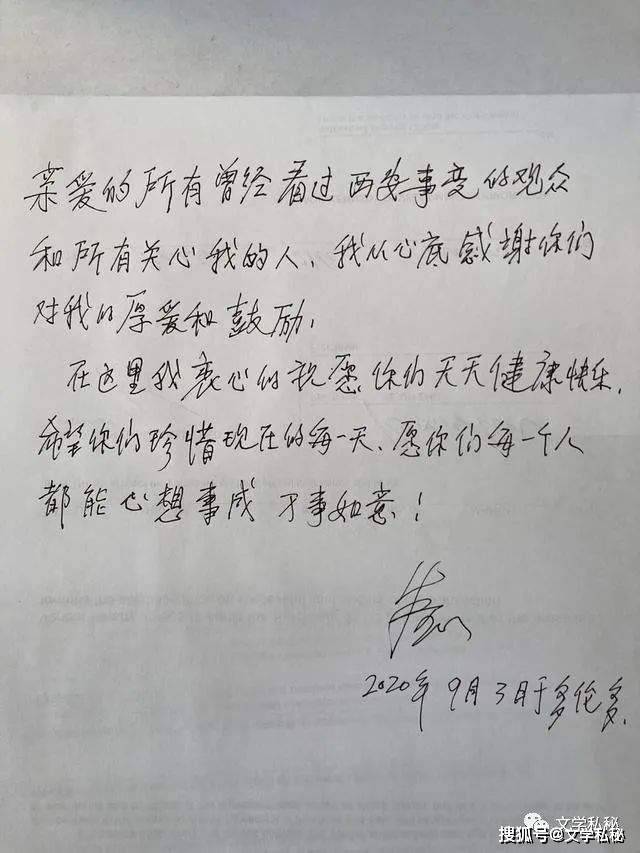 亲爱的所有曾经看过西安事变的观众
和所有关心我的人、我从心底感謝你们
对我的厚爱和鼓励，
在这里我衷心的祝愿你们天天健康快乐，
希望你们珍惜现在的每一天、愿你们每一个人
都能心想事成 万事如意！
2020年9月3日于多伦多.
文学私秘
搜狐号@文学私秘